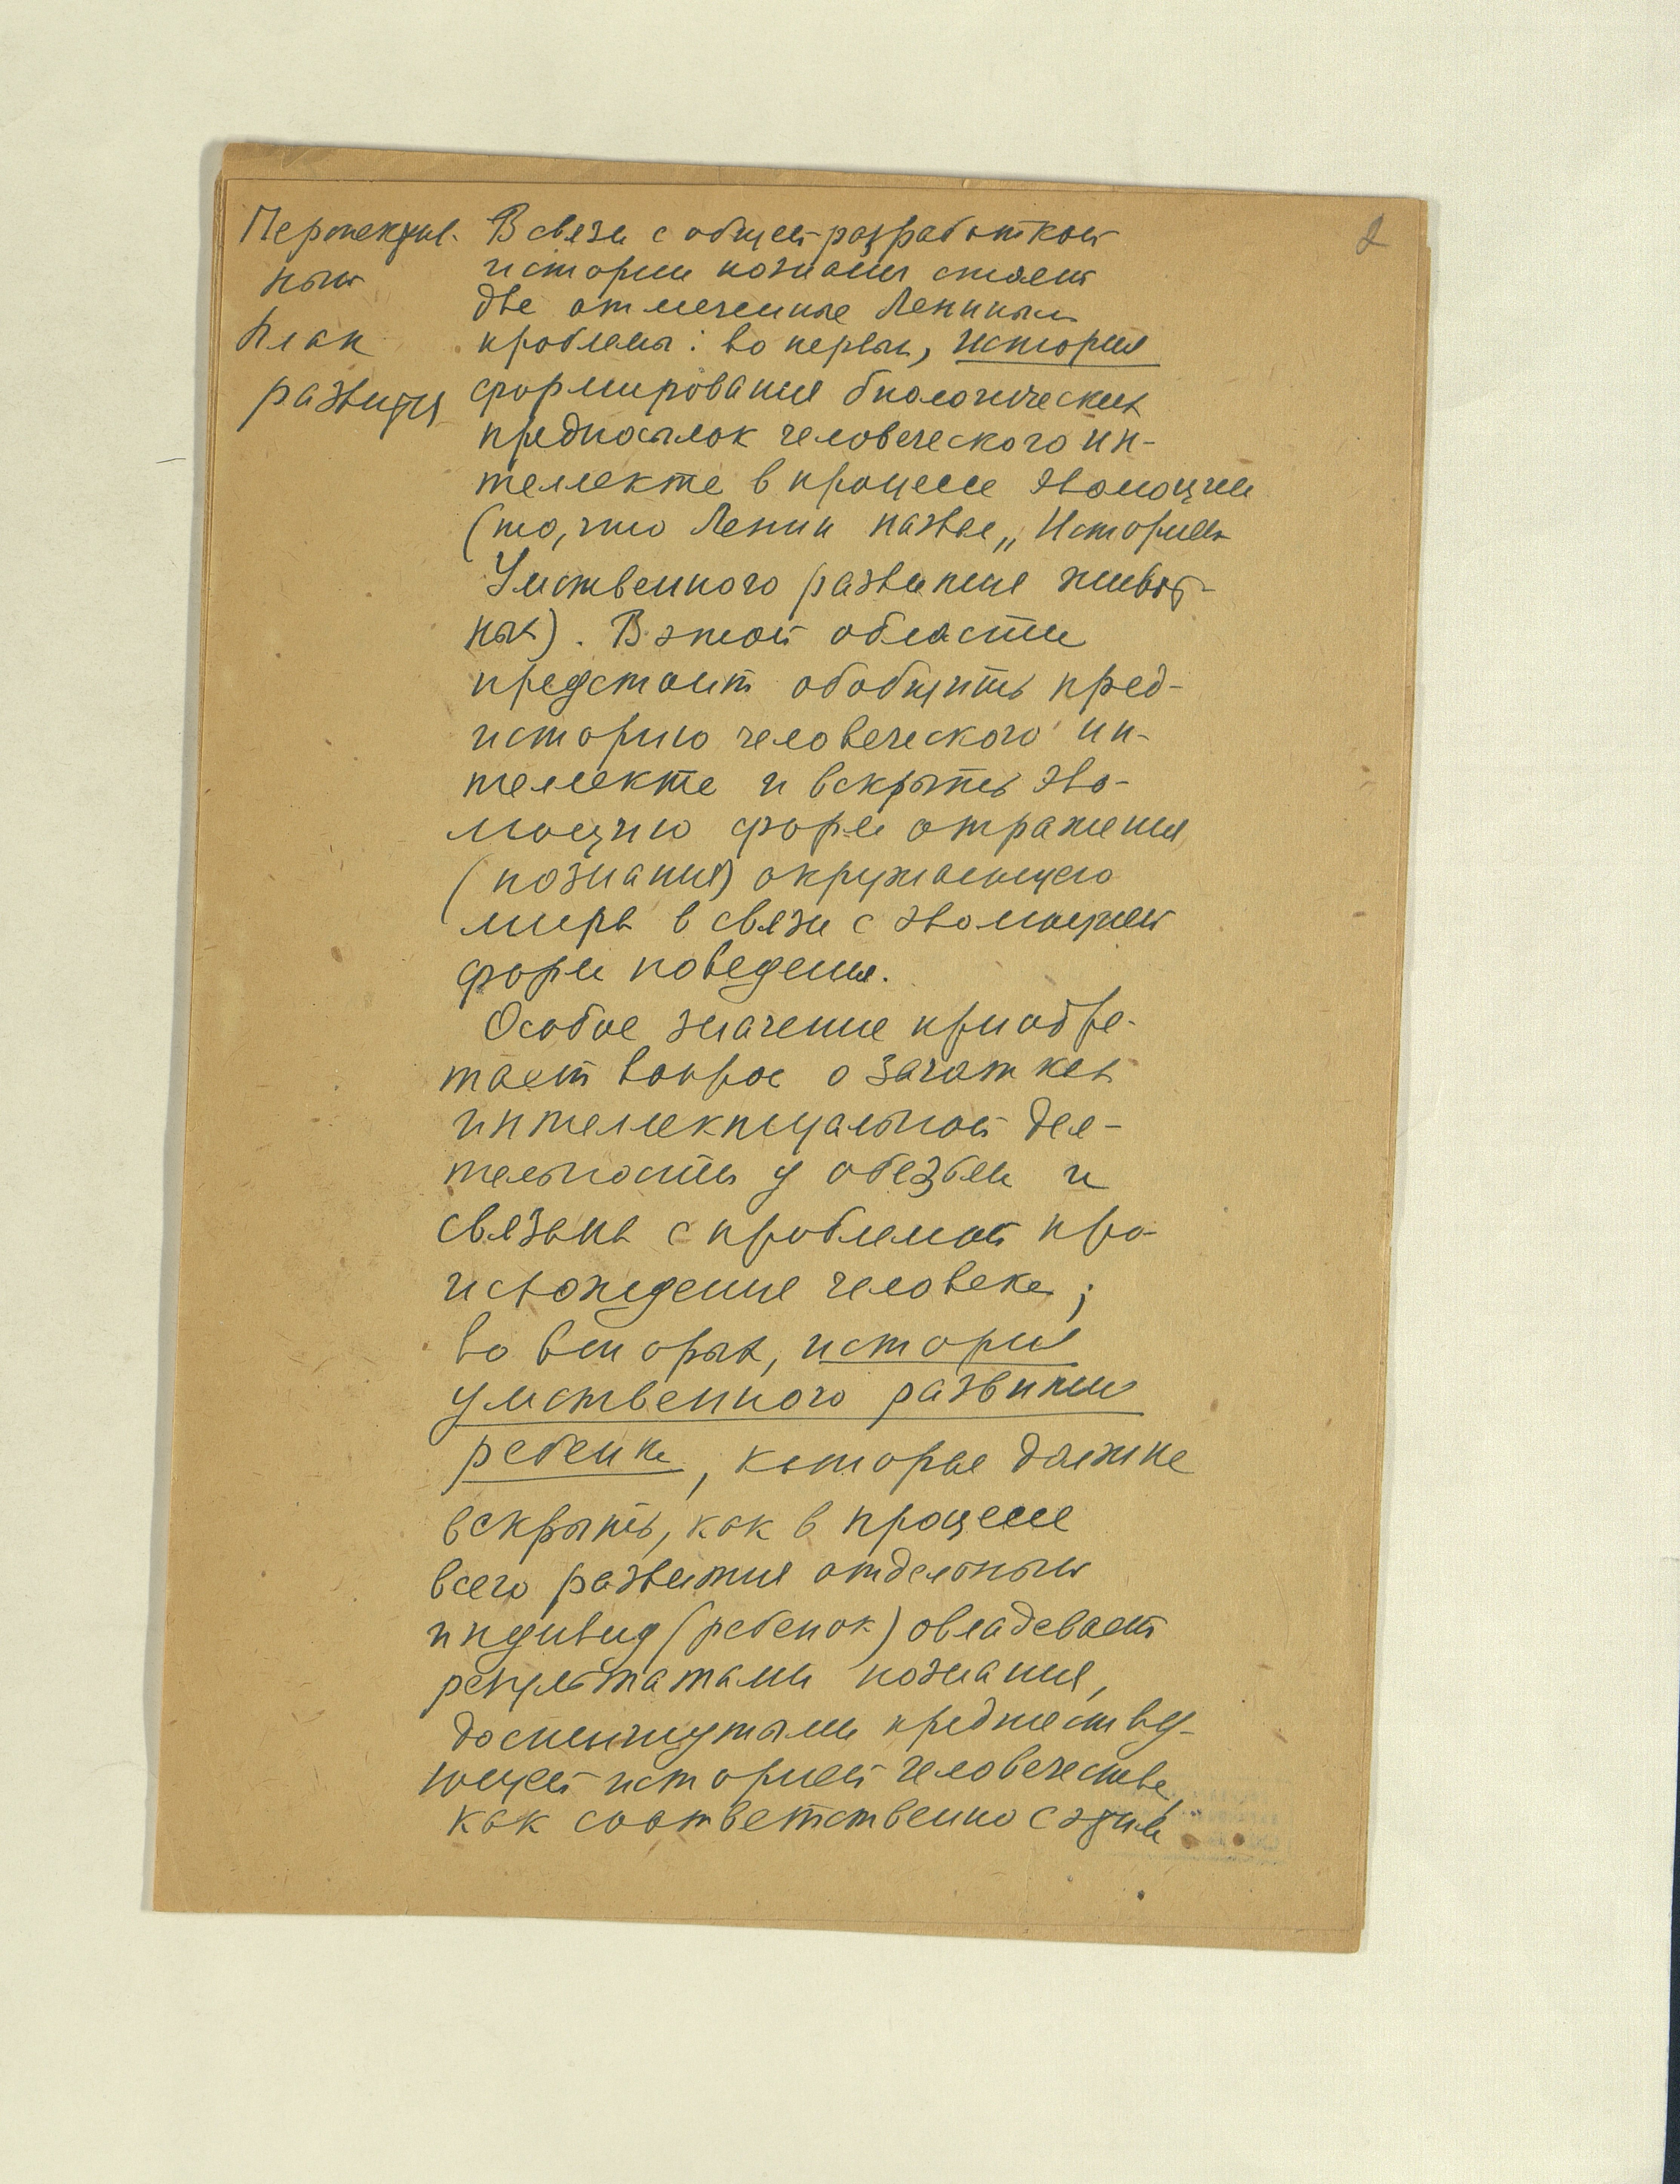 2
Перспектив-
ный
план
развития
В связи с общей разработкой
истории познания стоят
две отмеченные Лениным
проблемы: во первых, история
формирования биологических
предпосылок человеческого ин-
теллекта в процессе эволюции
(то, что Ленин назвал „Историей
Умственного развития живот-
ных). В этой области
предстоит обобщить пред-
историю человеческого ин-
теллекта и вскрыть эво-
люцию форм отражения
(познания) окружающего
мира в связи с эволюцией
форм поведения.
Особое значение приобре-
тает вопрос о зачатках
интеллектуальной дея-
тельности у обезьян и
связана с проблемой про-
исхождения человека;
во вторых, история
умственного развития
ребенка, которая должна
вскрыть, как в процессе
всего развития отдельный
индивид (ребенок) овладевает
результатами познания,
достигнутыми предшеству-
ющей историей человечества,
как соответственно с этим